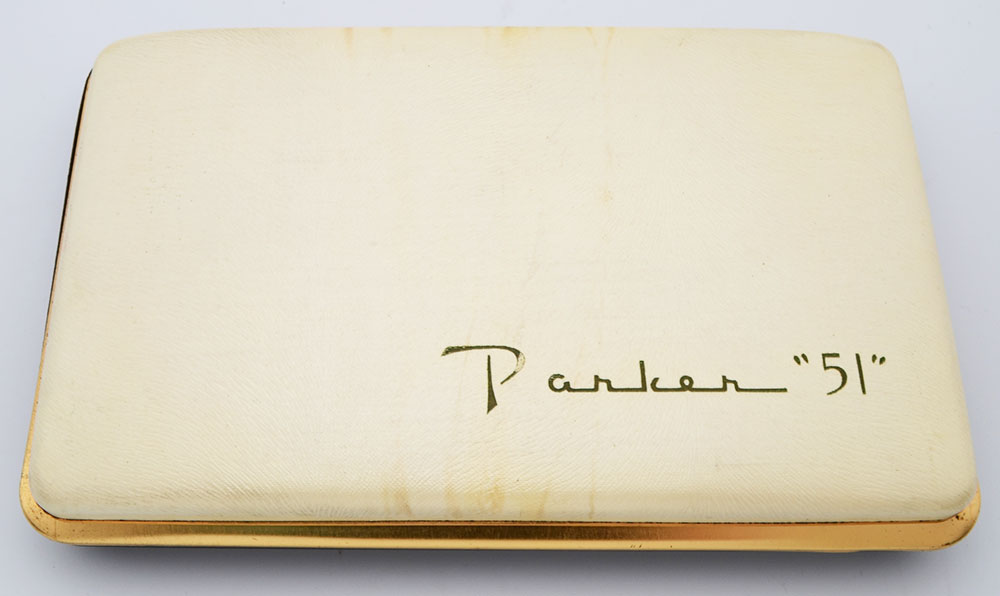 Parker "51"